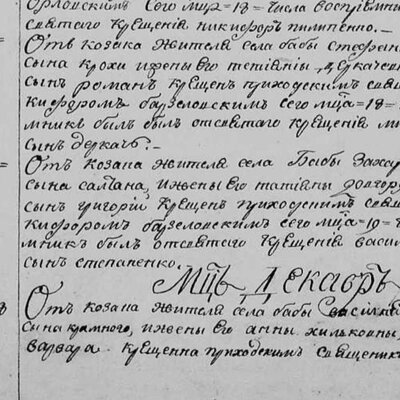 орловскимъ сего мца =18= числа воспріемни
святаго крещенія никифоръ пилипенко.—
Отъ козака жителя села бабы стефан
сына крохи ижены его татіяны деркачев
сынъ романъ крещенъ приходскимъ свя
кифоромъ базелевскимъ сего мца =18=
мникъ былъ былъ отсвятаго крещенія ми
сынъ деркачъ.—
Отъ козака жителя села Бабы Захар
сына салтана, ижены его татіяны долгор
сынъ григорій крещенъ приходскимъ свящ
кифоромъ базелевскимъ сего мца =19=
мникъ былъ отсвятаго крещенія васил
сынъ степаненко.—
Мцъ Декабръ
Отъ козака жителя села бабы василія
сына храмного, ижены его анны хильковны,
варвара крещенна приходскимъ священник